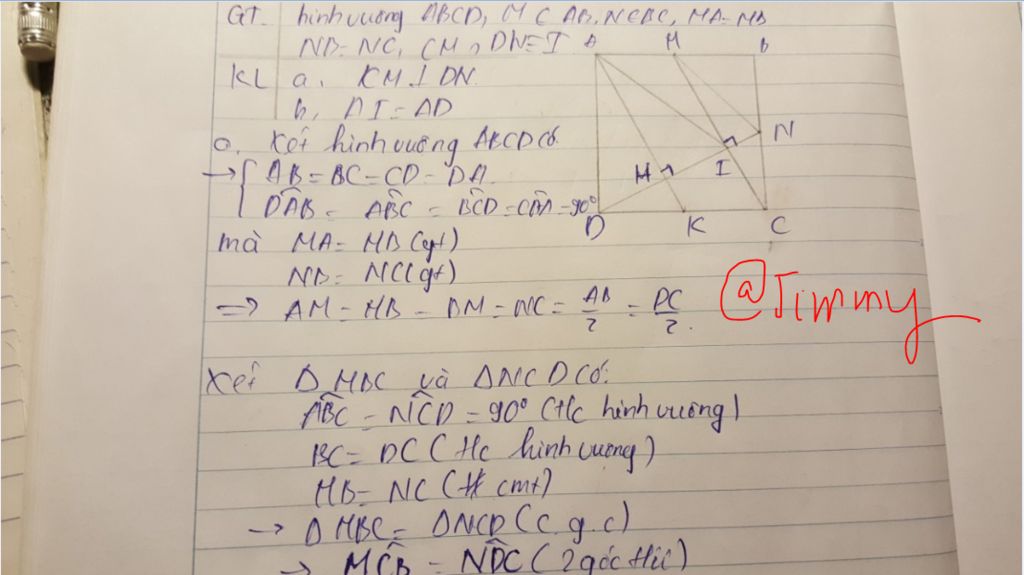 GT. hình vuông ABCD, M ∈ AB, N ∈ BC, MA = MB
NB = NC, CM ∩ DN = I
KL a. CM ⊥ DN.
b, AI = AD
A M B
N
H I
D K C
a. Xét hình vuông ABCD có
→ { AB = BC = CD = DA
DAB = ABC = BCD = CDA = 90°
mà MA = MB (gt)
NB = NC (gt)
=> AM = MB = BN = NC = AB/2 = DC/2.
@Jimmy
Xét Δ MBC và ΔNCD có:
ABC = NCD = 90° (t/c hình vuông)
BC = DC (t/c hình vuông)
MB = NC (cmt)
→ Δ MBC = ΔNCD (c.g.c)
→ MCB = NDC (2 góc t/ứ)